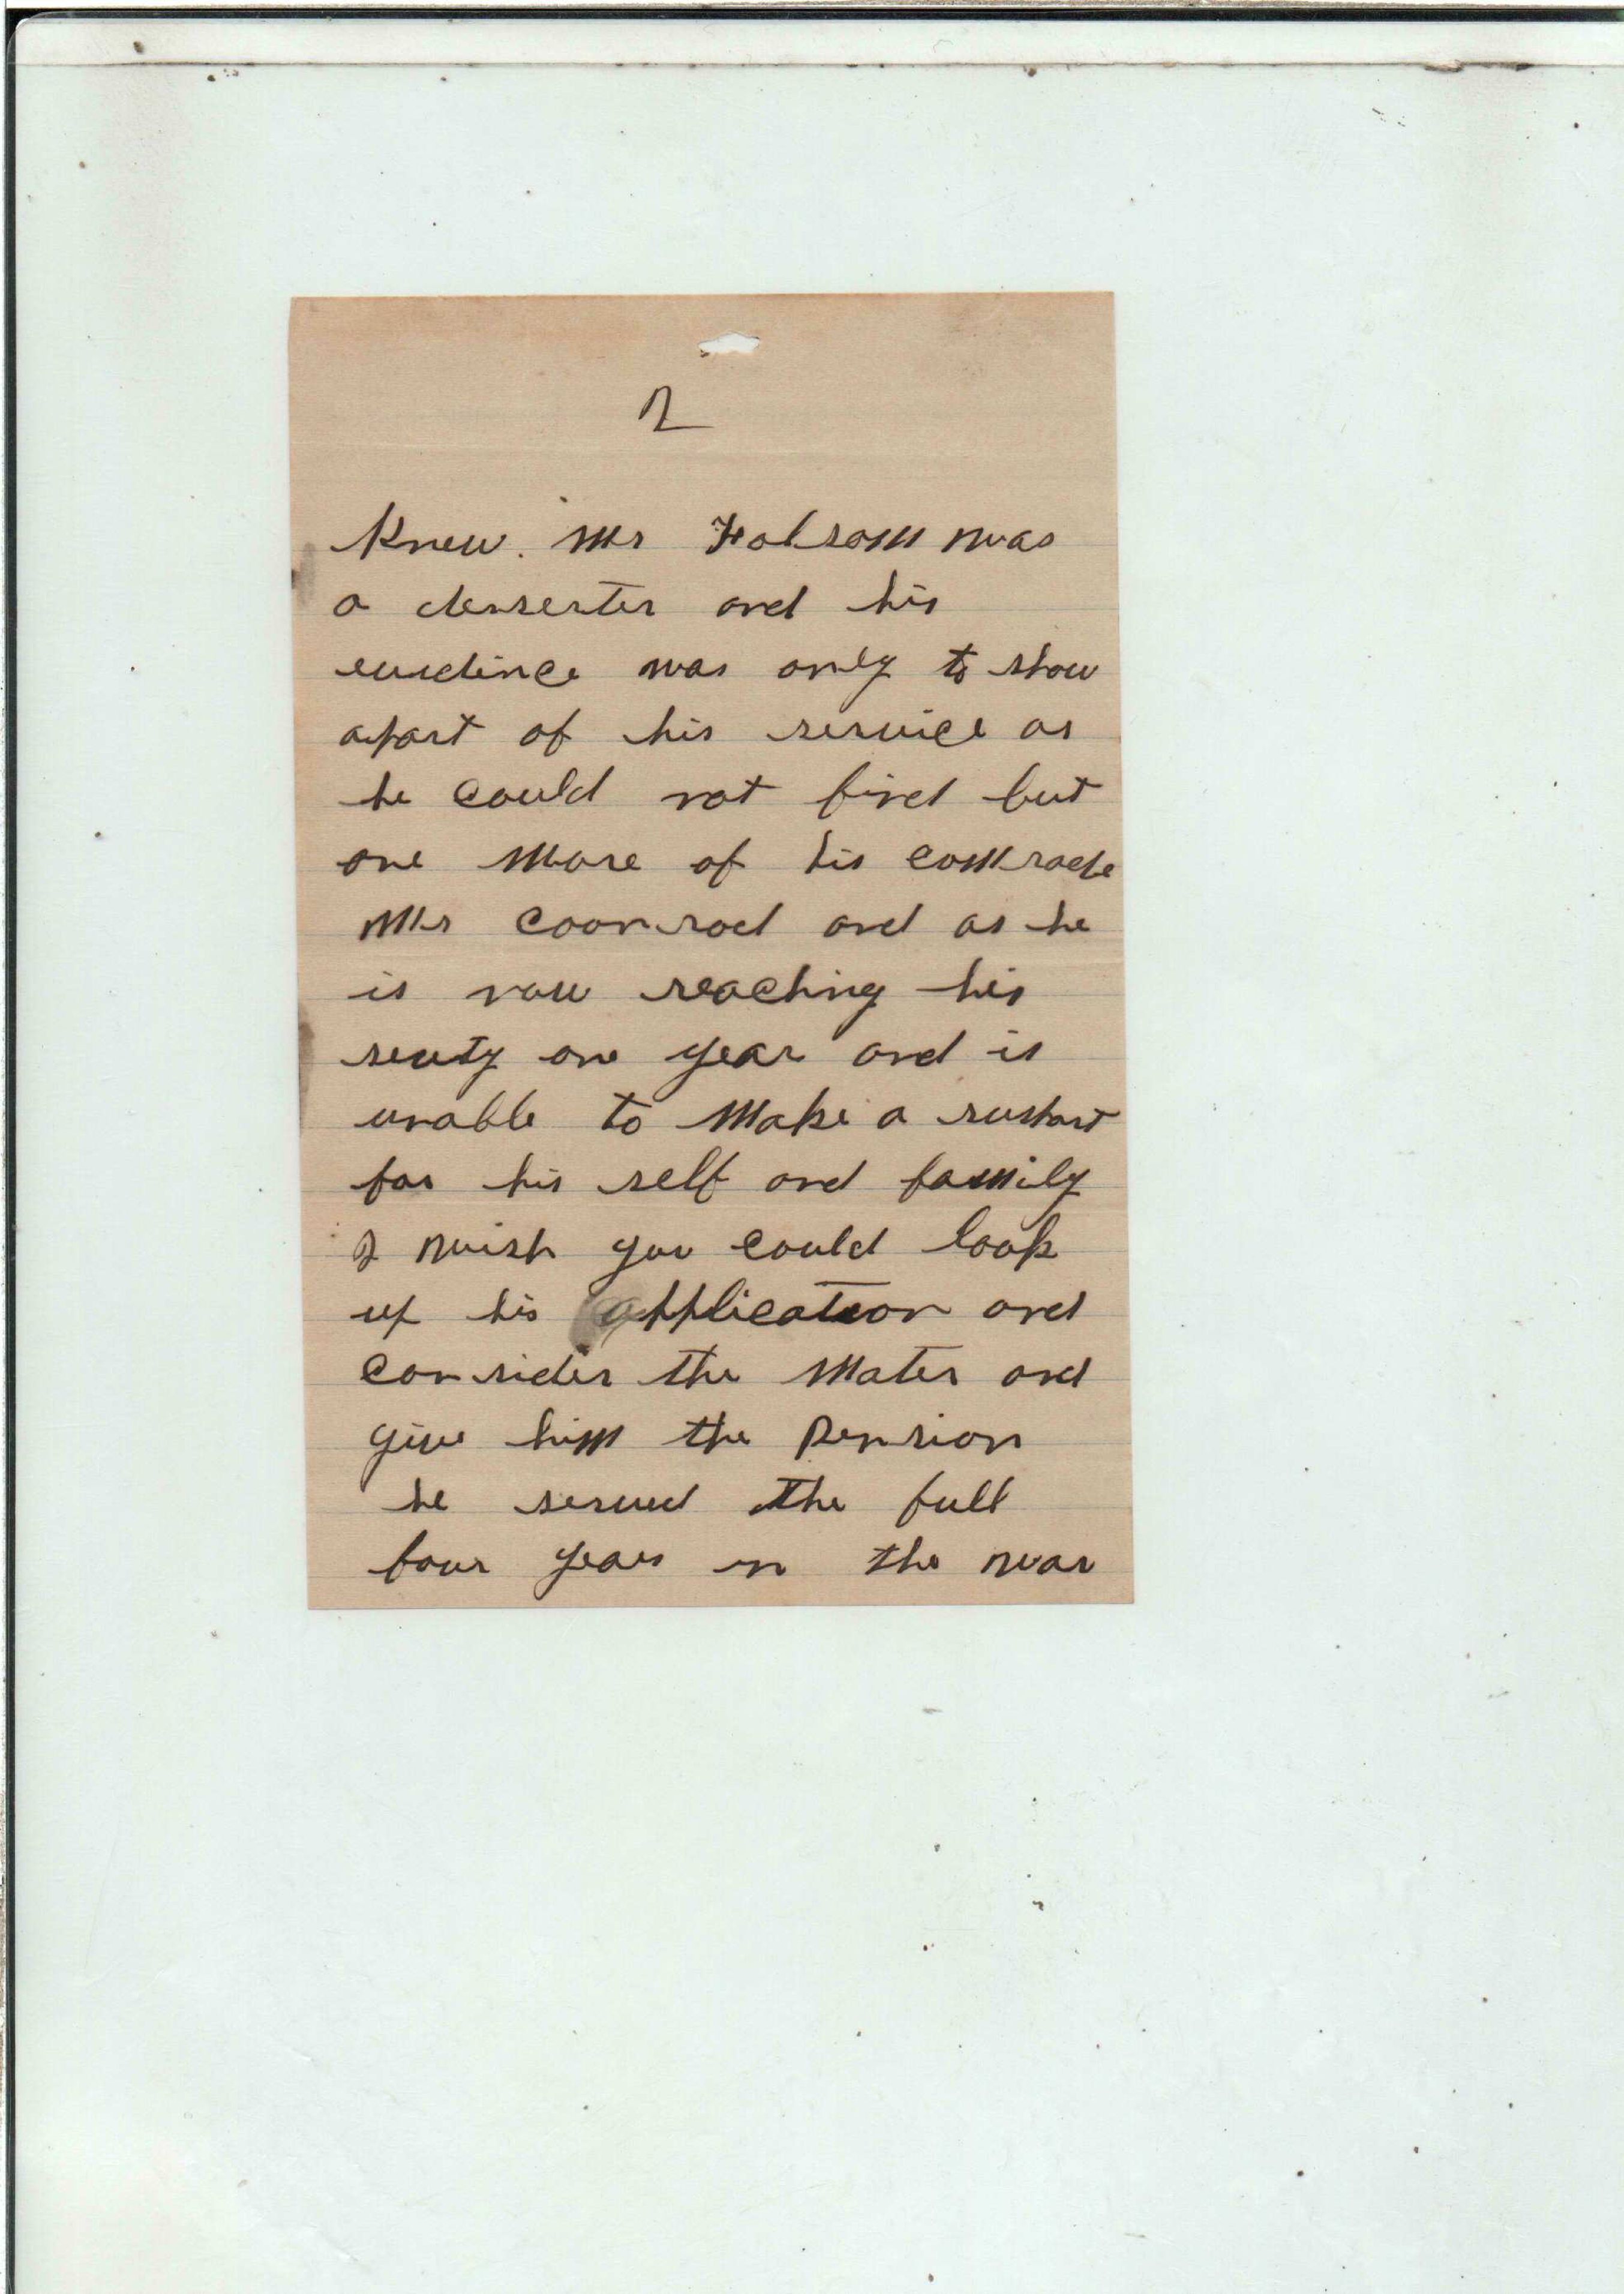 2
Knew. Mr Folsom was
a denserter and his
evidince was only to show
apart of his service as
he could not find but
one more of his comrade
Mr Coonrod and as he
is now reaching his
seuty one year and is
unable to make a
for his self and family
I wish you could look
up his application and
consider the mater and
give him the Pension
he served the full
four years in the war